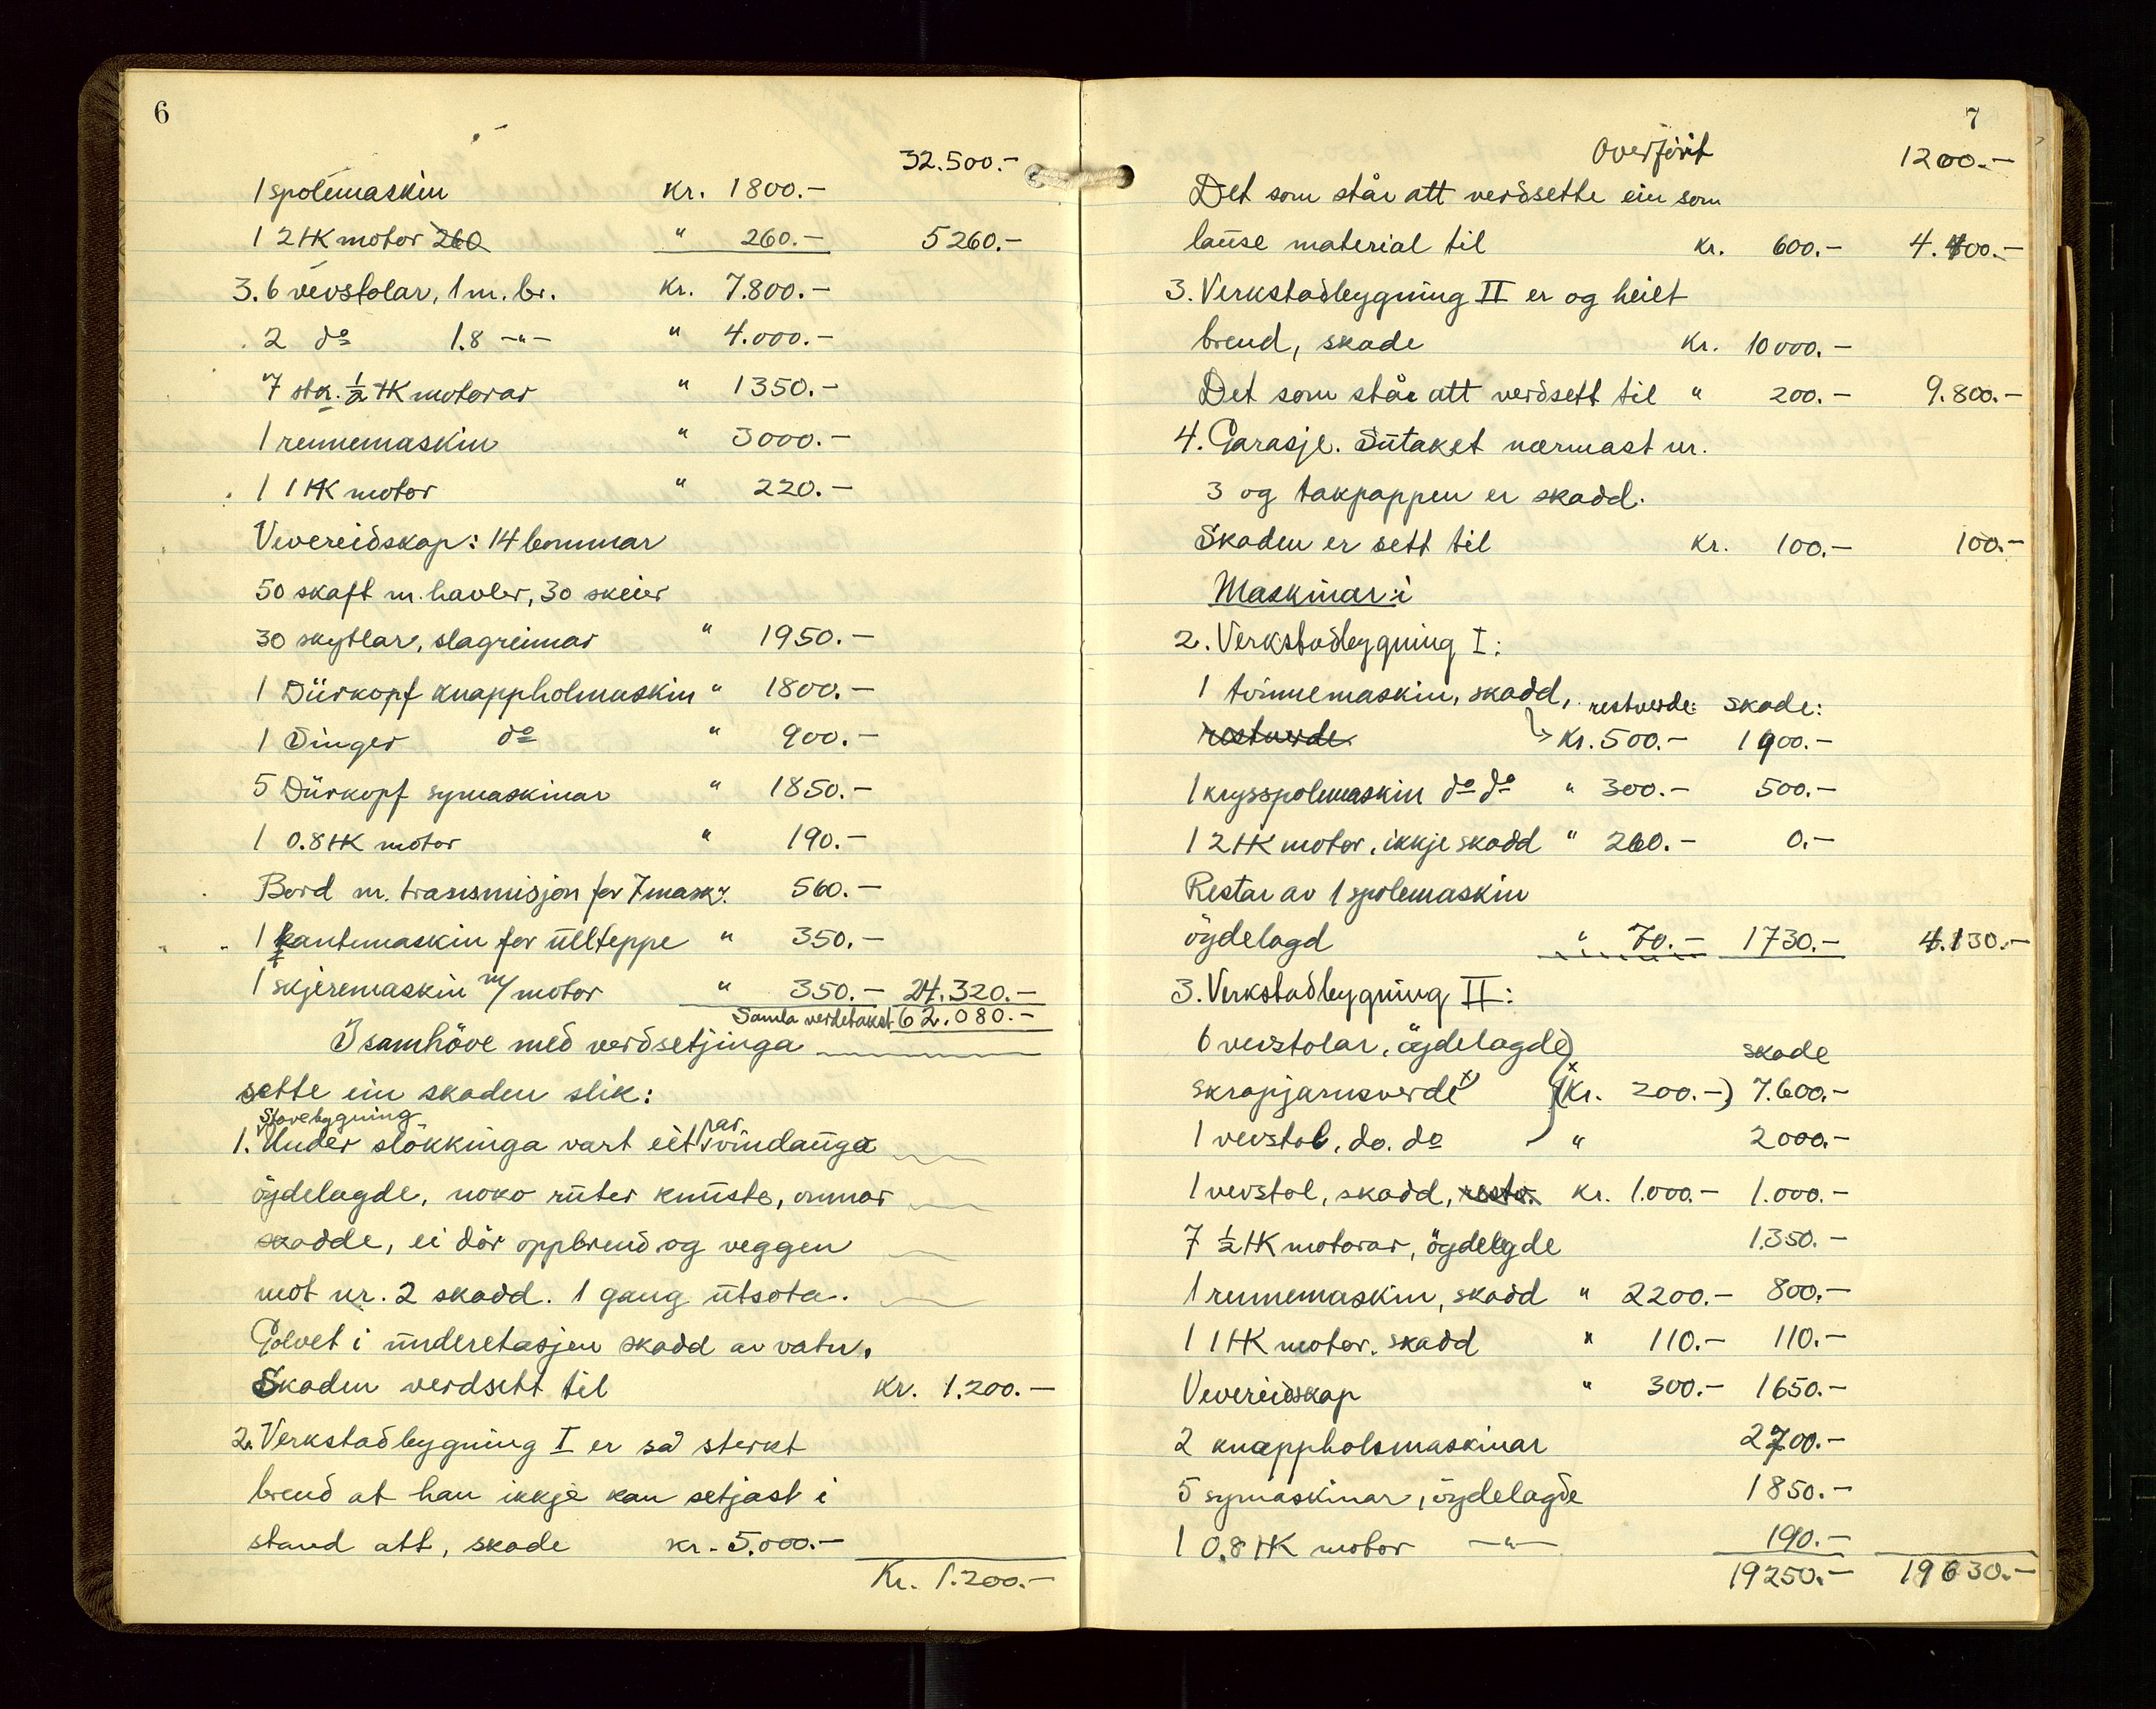 6
32.500.-
1 spolemaskin kr. 1800.-
1 2 HK motor 260 " 260.- 5260.-
3. 6 vevstolar, 1 m. br. kr. 7.800.-
2 do 1.8 -"- " 4.000.-
7 stk. ½ HK motorar " 1350.-
1 rennemaskin " 3000.-
1 1 HK motor " 220.-
Vevereidskap: 14 bommar
50 skaft m. havler, 30 skeier
30 skytlar, slagreimar " 1950.-
1 Dürkopf knappholmaskin " 1800.-
1 Singer do " 900.-
5 Dürkopf symaskinar " 1850.-
1 0.8 HK motor " 190.-
Bord m. transmisjon for 7 mask. " 560.-
1 kantemaskin for ullteppe " 350.-
1 skjeremaskin m/motor " 350.- 24.320.-
Samla verdetakst 62.080.-
I samhöve med verdsetjinga
sette ein skaden slik:
Stovebygning
1. Under slökkinga vart eit par vindauga
öydelagde, noko ruter knuste, onnor
skadde, ei dör oppbrend og veggen
mot nr. 2 skadd. 1 gang utsota.
Golvet i underetasjen skadd av vatn.
Skaden verdsett til kr. 1.200.-
2. Verkstadbygning I er så sterkt
brend at han ikkje kan setjast i
stand att, skade kr. 5.000.-
Kr. 1.200.-
7
Overfört 1200.-
Det som står att verdsette ein som
lause material til kr. 600.- 4.400.-
3. Verkstadbygning II er og heilt
brend, skade kr. 10000.-
Det som står att verdsett til " 200.- 9.800.-
4. Garasje. Sutaket nærmast nr.
3 og takpappen er skadd.
Skaden er sett til kr. 100.- 100.-
Maskinar i
2. Verkstadbygning I:
1 tvinnemaskin, skadd, restverde: skade:
restverde kr. 500.- 1900.-
1 krysspolemaskin do do " 300.- 500.-
1 2 HK motor, ikkje skadd " 260.- 0.-
Restar av 1 spolemaskin
öydelagd " 70.- 1730.- 4.130.-
3. Verkstadbygning II:
6 vevstolar, öydelagde) skade
skrapjarnsverde x) (kr. 200.-) 7.600.-
1 vevstol, do. do " 2000.-
1 vevstol, skadd, restv. kr. 1.000.- 1.000.-
7 ½ HK motorar, öydelegde 1.350.-
1 rennemaskin, skadd " 2200.- 800.-
1 1 HK motor, skadd " 110.- 110.-
Vevereidskap " 300.- 1650.-
2 knappholsmaskinar 2700.-
5 symaskinar, öydelagde 1850.-
1 0.8 HK motor -"- 190.-
19250.- 19630.-